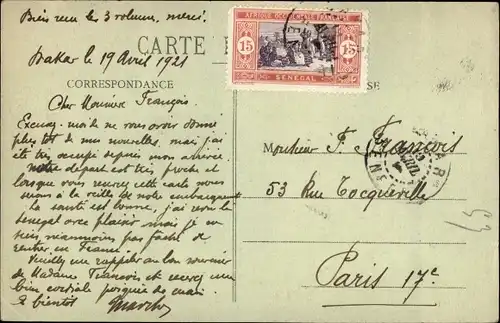 Bien reçu les 3 volumes, merci.
Dakar le 19 Avril 1921
CARTE
AFRIQUE OCCIDENTALE FRANÇAISE
15 15
SENEGAL
CORRESPONDANCE
SSE
Cher Monsieur François.
Excusez-moi de ne vous avoir donné
plus tôt de mes nouvelles, mais j'ai
été très occupé depuis mon arrivée
notre départ est très proche et
lorsque vous recevrez cette carte nous
serons à la veille de notre embarquement
la santé est bonne, j'ai revu le
Senegal avec plaisir mais je
suis néanmoins pas faché de
rentrer en France.
Veuillez me rappeler au bon souvenir
de Madame François et recevez une
bien cordiale poignée de main.
A bientôt
Monsieur F. François
53 Rue Tocqueville
Paris 17e